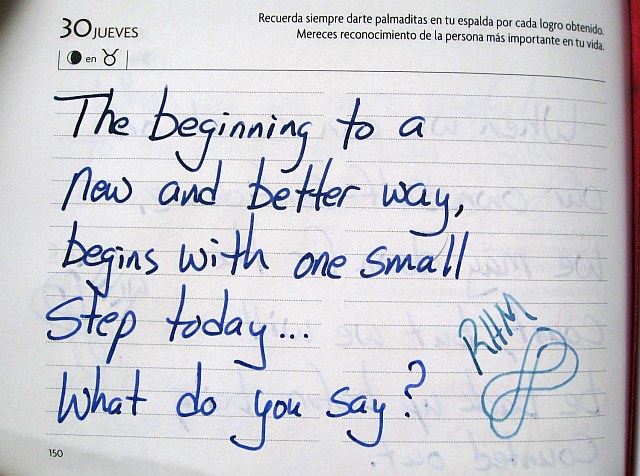 30 JUEVES
Recuerda siempre darte palmaditas en tu espalda por cada logro obtenido.
Mereces reconocimiento de la persona más importante en tu vida.
en
The beginning to a
new and better way,
begins with one small
Step today...
What do you say?
RHM
150